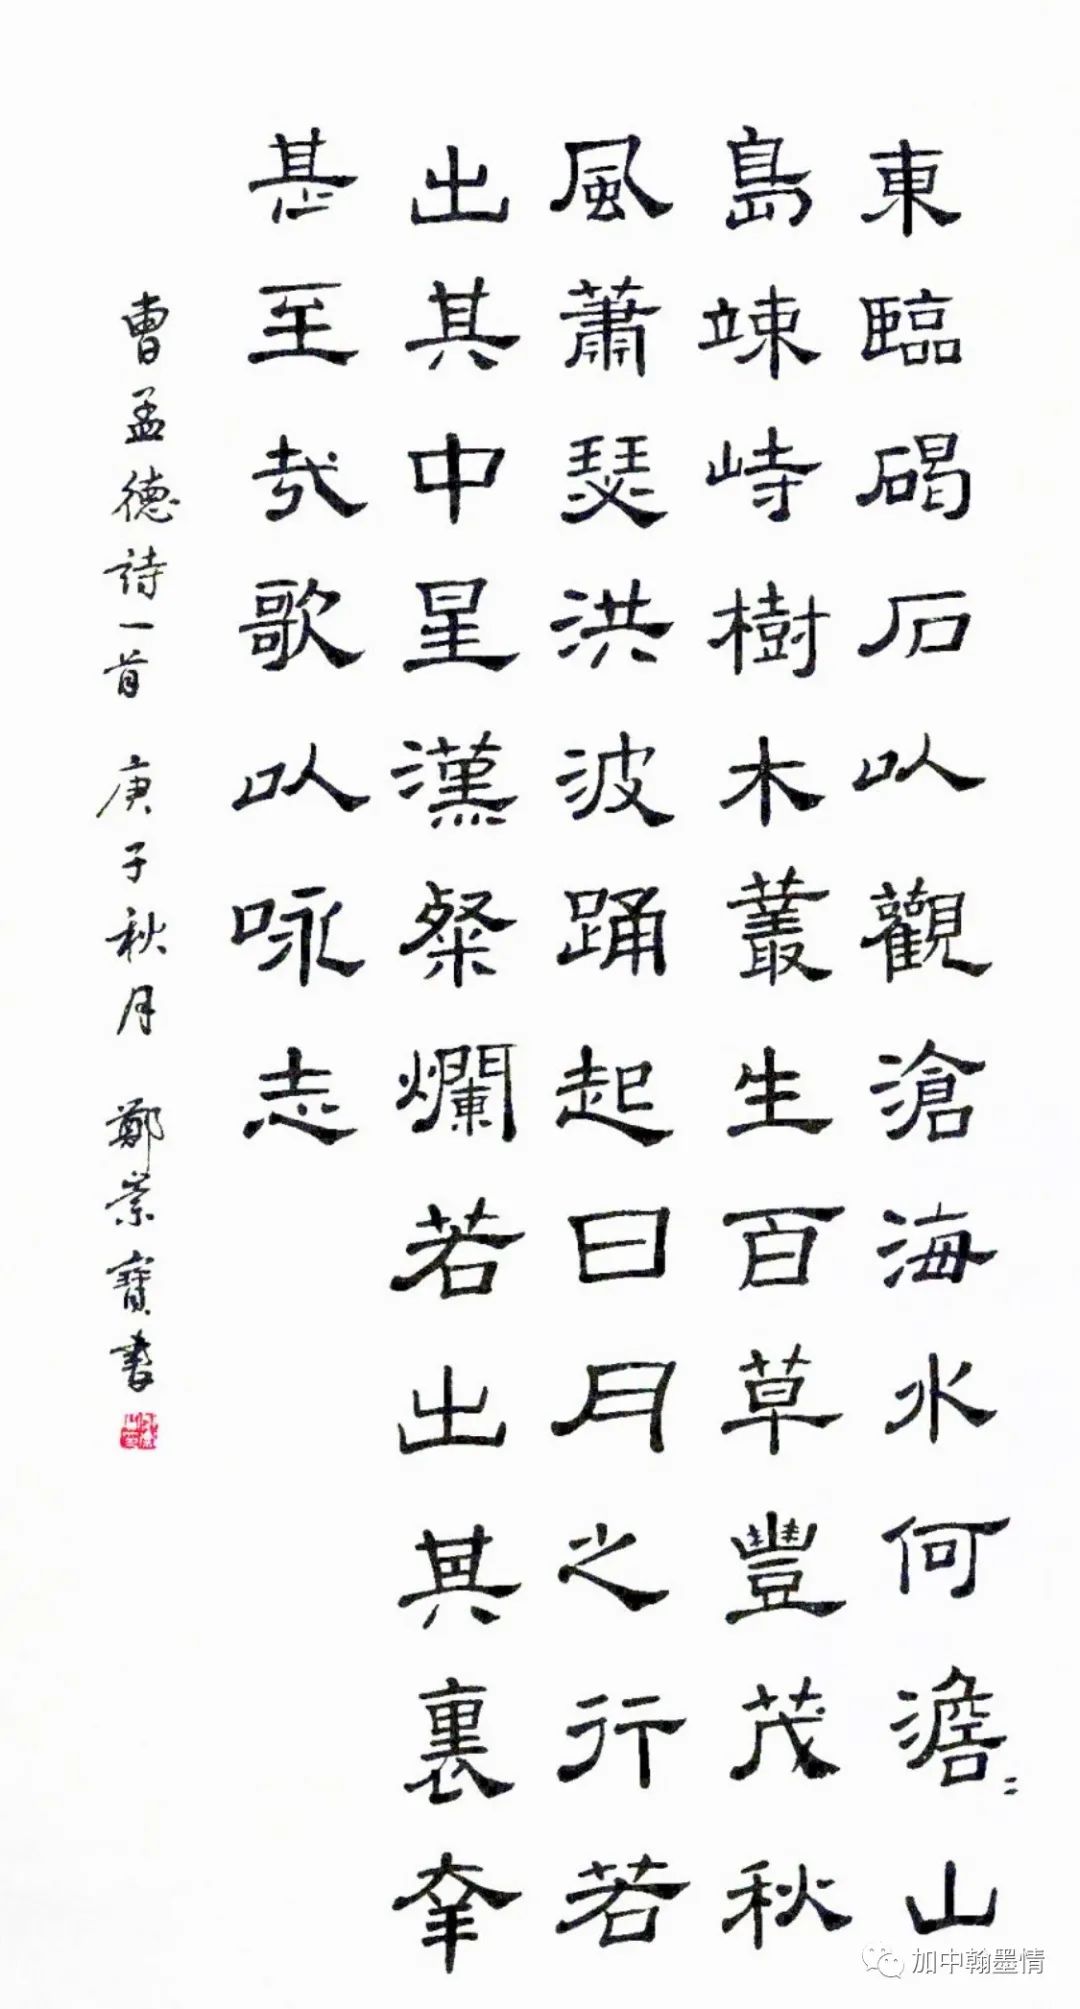 東臨碣石以觀滄海水何澹〻山
島竦峙樹木叢生百草豐茂秋
風蕭瑟洪波踊起日月之行若
出其中星漢粲爛若出其裏幸
甚至哉歌以咏志
曹孟德詩一首 庚子秋月 鄭崇寶書
加中翰墨情